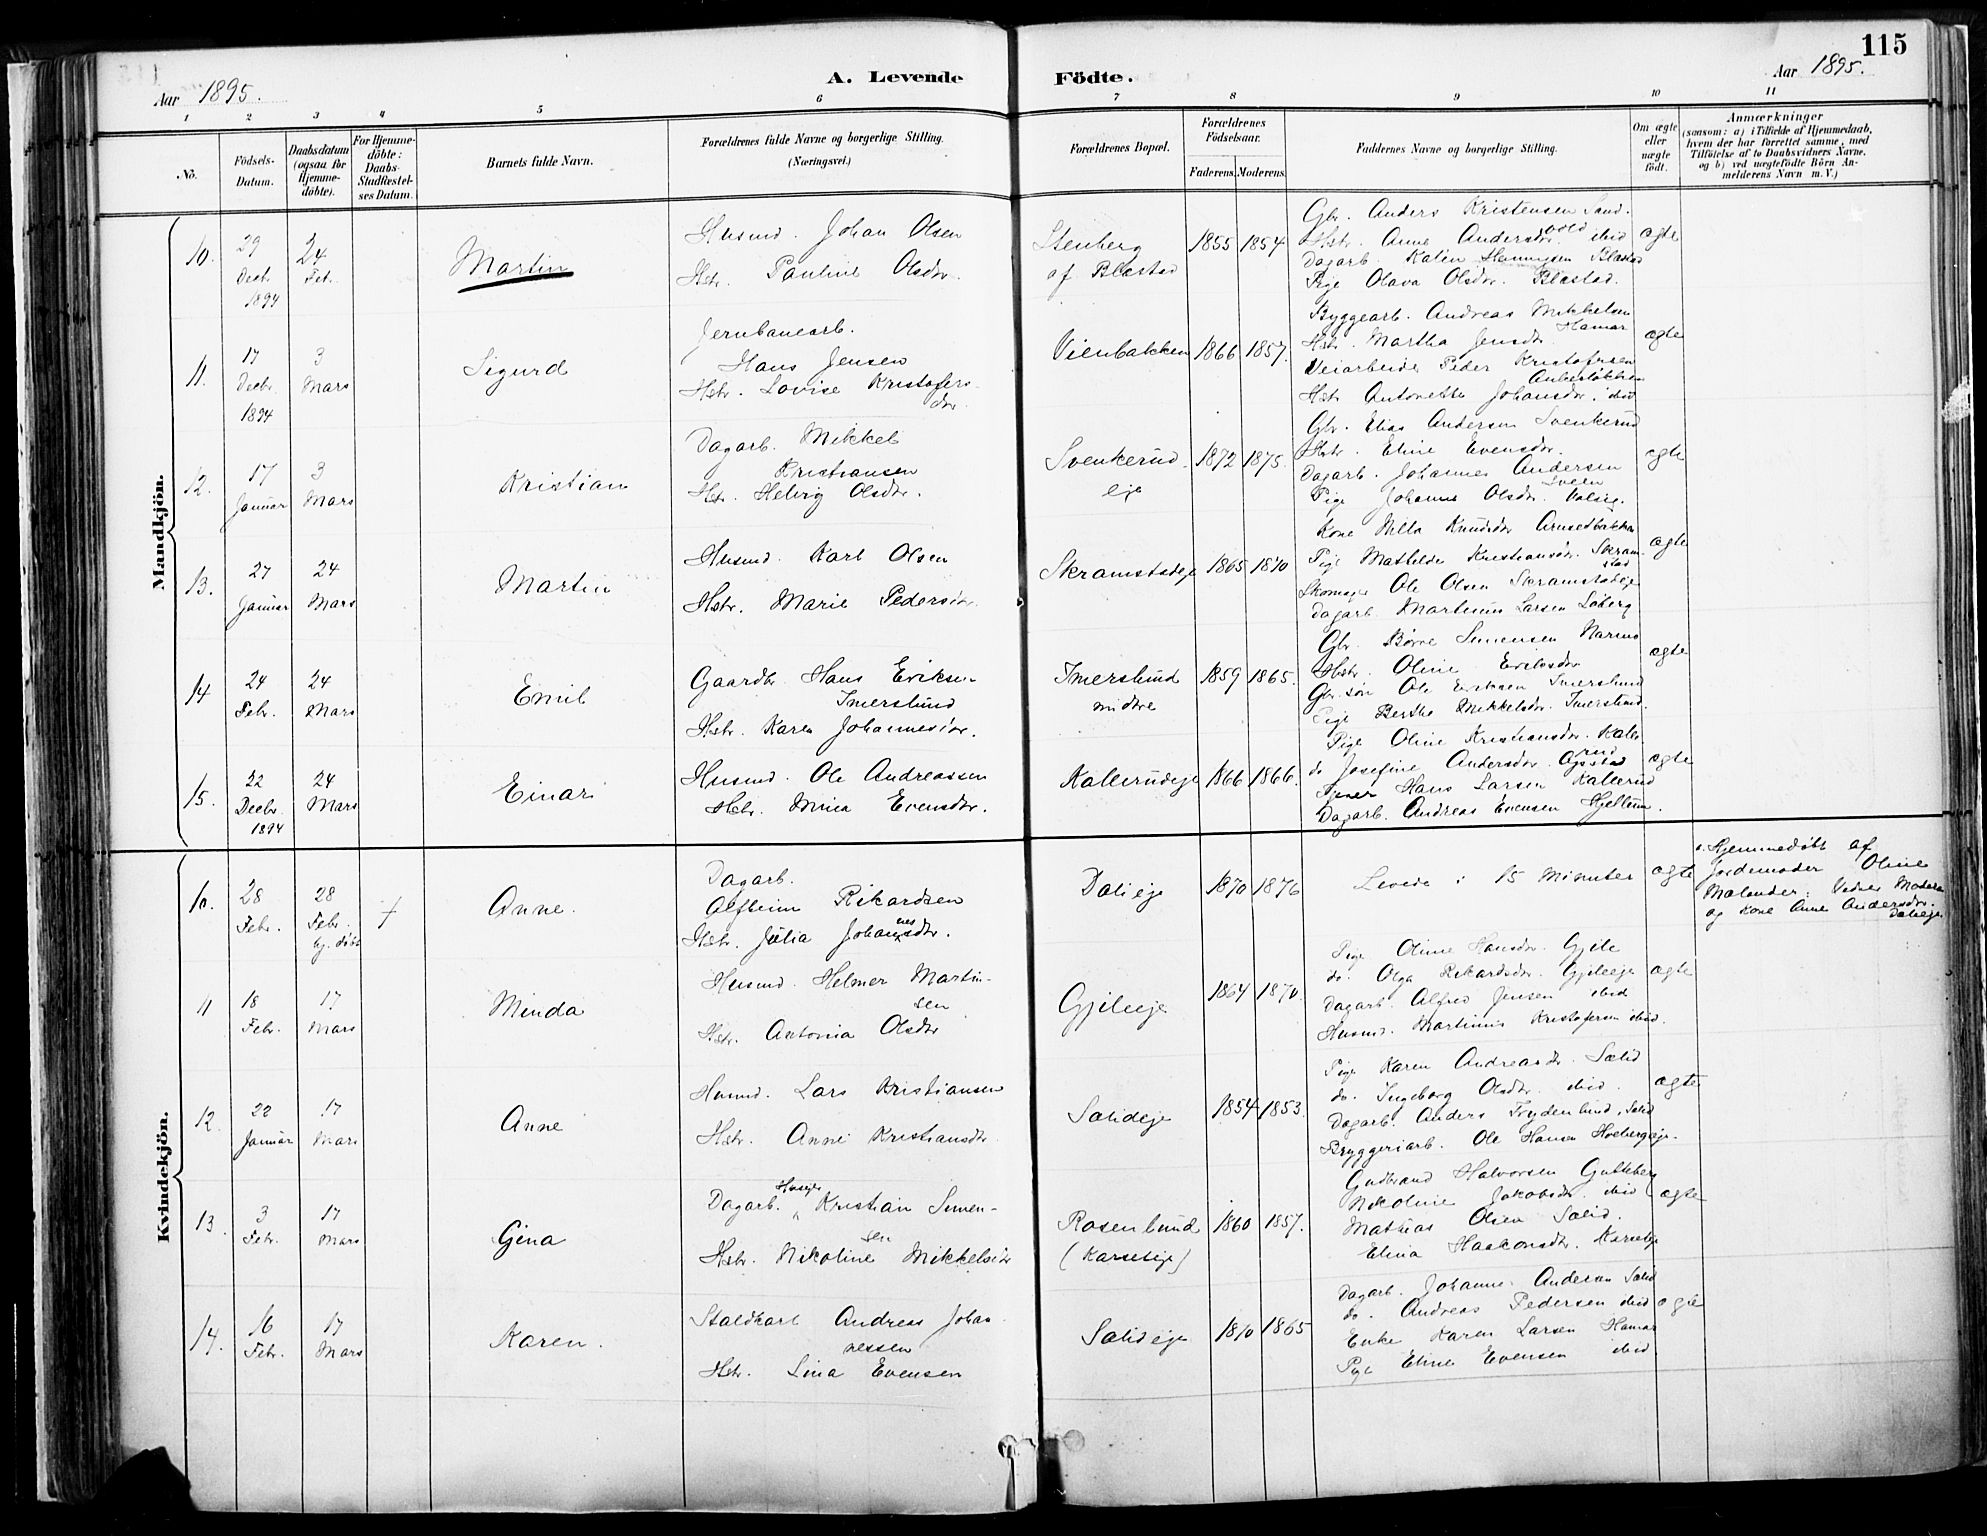 115
Aar 1895.
A. Levende Födte.
Aar 1895.
1 2 3 4 5 6 7 8 9 10 11
No.
Födsels-Datum.
Daabsdatum (ogsaa for Hjemme-döbte).
For Hjemme-döbte: Daabs-Stadfæstel-ses Datum.
Barnets fulde Navn.
Forældrenes fulde Navne og borgerlige Stilling.
(Næringsvei.)
Forældrenes Bopæl.
Forældrenes Födselsaar.
Faderens. Moderens.
Faddernes Navne og borgerlige Stilling.
Om ægte eller uægte födt.
Anmærkninger
(saasom: a) i Tilfælde af Hjemmedaab,
hvem der har forrettet samme, med
Tilföielse af to Daabsvidners Navne.
og b) ved uægtefödte Börn An-
melderens Navn m. V.)
Mandkjön.
10. 29 Decbr. 1894 24 Febr. Martin
Husmd. Johan Olsen
Hstr. Pauline Olsdtr.
Stenberg
af Blæstad
1855 1854
Gbr. Anders Kristensen Sand-
vold
Hstr. Anne Andersdtr. ibid
Dagarb. Henningsen Blæstad
Pige Olava Olsdtr. Blæstad.
ægte
11. 17 Decbr. 1894 3 Mars Sigurd
Jernbanearb.
Hans Jensen
Hstr. Lovise Kristofers-
dtr.
Vienbakken
1866 1857.
Byggearb. Andreas Mikkelsen
Hamar
Hstr. Martha Jensdtr.
Veiarbeider Peder Kristofersen
Hstr. Antonette Johansdtr. ibid
ægte
12. 17 Januar 3 Mars Kristian
Dagarb. Mikkel
Kristiansen
Hstr. Helvig Olsdtr.
Svenkerud
eje
1872 1875.
Gbr. Elias Andersen Svenkerud
Hstr. Eline Evensdtr.
Dagarb. Johannes Andersen
Sveen
Pige Johanne Olsdtr.
ægte
13. 27 Januar 24 Mars Martin
Husmd. Karl Olsen
Hstr. Marie Pedersdtr.
Skramstadeje
1865 1870
Kone Knudsdtr
Pige Mathilde Kristiansdtr. Skram-
stad
Skomager Ole Olsen Skramstadeje
Dagarb. Martinus Larsen Løberg
ægte
14 24 Febr. 24 Mars Emil
Gaardbr. Hans Eriksen
Imerslund
Hstr. Karen Johannesdtr.
Imerslund
midtre
1859 1865.
Gbr. Børre Simensen Narmo
Hstr. Oline Eriksdtr
Gbr.søn Ole Eriksen Imerslund
Pige Berthe Mikkelsdtr. Imerslund.
ægte
15. 22 Decbr. 1894 24 Mars Einar
Husmd. Ole Andreassen
Hstr. Mina Evensdtr.
Kallerudeje
1866 1866.
Pige Oline Kristiansdtr. Kalle-
rud
do Josefine Andersdtr.
Tjener Hans Larsen Kallerud
Dagarb. Andreas Evensen Hjellum.
ægte
Kvindekjön.
10. 28 Febr. 28 Febr. hj. døbt † Anne.
Dagarb.
Alfheim Rikardsen
Hstr. Julia Johannesdtr.
Dalieje
1870 1876
Levede i 15 Minuter
ægte
a. Hjemmedøbt af
Jordemoder Oline
Melander; Vidner Moderen
og Kone Anne Andersdtr.
Dalieje
11 18 Febr. 17 Mars Minda
Husmd. Helmer Martin-
sen
Hstr. Antonia Olsdtr
Gjileeje
1864 1870.
Pige Oline Hansdtr. Gjile
do. Olga Rikardsdtr. Gjileeje
Dagarb. Alfred Jensen ibid
Husmd. Martinus Kristofersen ibid.
ægte
12. 22 Januar 17 Mars Anne
Husmd. Lars Kristiansen
Hstr. Anne Kristiansdtr.
Sælideje
1854 1853.
Pige Karen Andreasdtr. Sælid
do. Ingeborg Olsdtr. ibid.
Dagarb. Anders Frydenlund, Sælid
Bryggeriarb. Ole Hansen Hoebergeje.
ægte
13. 3 Febr. 17 Mars Gina
Dagarb. Huseier Kristian Simen-
sen
Hstr. Nikoline Mikkelsdtr
Rosenlund
(Karseeje)
1860 1857.
Gudbrand Halvorsen
Nikoline Jakobsdtr. ibid
Mathias Olsen Sælid.
Elina Haakonsdtr.
ægte
14. 16 Febr. 17 Mars Karen.
Staldkarl Andreas Johan-
nessen
Hstr. Lina Evensen
Sælideje
1870 1865
Dagarb. Johannes Andersen Sælid
do. Andreas Pedersen ibid
Enke Karen Larsen Hamar
Pige Eline Evensen ibid
ægte